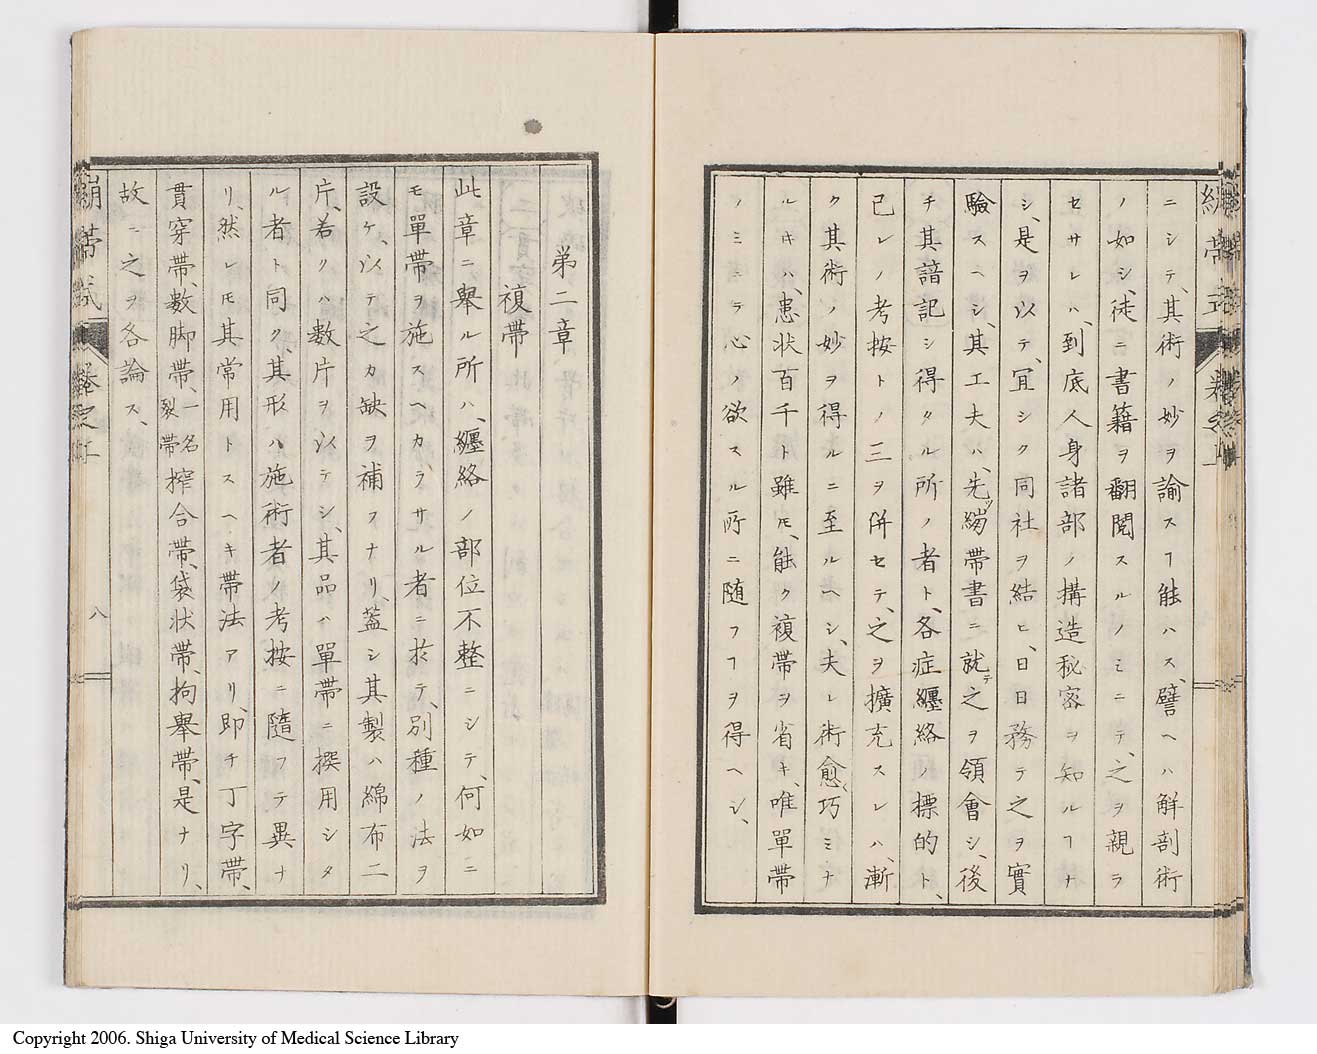 ニシテ、其術ノ妙ヲ諭スヿ能ハス、譬ヘハ解剖術
ノ如シ、徒ニ書籍ヲ翻閲スルノミニテ、之ヲ親ラ
セサレハ、到底人身諸部ノ搆造秘窓ヲ知ルヿナ
シ、是ヲ以テ、宜シク同社ヲ結ヒ、日日務テ之ヲ實
驗スヘシ、其工夫ハ、先ツ繃帯書ニ就テ之ヲ領會シ、後
チ其諳記シ得タル所ノ者ト、各症纒絡ノ標的ト、
己レノ考按トノ三ヲ併セテ、之ヲ擴充スレハ、漸
ク其術ノ妙ヲ得ルニ至ルヘシ、夫レ術愈〻巧ミナ
ルキハ、患状百千ト雖𪜈、能ク複帯ヲ省キ、唯單帯
ノミニテ心ノ欲スル所ニ随フヿヲ得ヘシ、
弟二章
複帯
此章ニ舉ル所ハ、纒絡ノ部位不整ニシテ、何如ニ
モ單帯ヲ施スヘカラサル者ニ於テ、別種ノ法ヲ
設ケ、以テ之カ缺ヲ補フナリ、蓋シ其製ハ綿布二
片、若クハ數片ヲ以テシ、其品ハ單帯ニ撰用シタ
ル者ト同ク、其形ハ施術者ノ考按ニ隨フテ異ナ
リ、然レ𪜈其常用トスヘキ帯法アリ、即チ丁字帯、
貫穿帯、數脚帯、一名裂帯搾合帯、袋状帯、拘舉帯、是ナリ、
故ニ之ヲ各論ス、
繃帯式 巻之
八
Copyright 2006. Shiga University of Medical Science Library